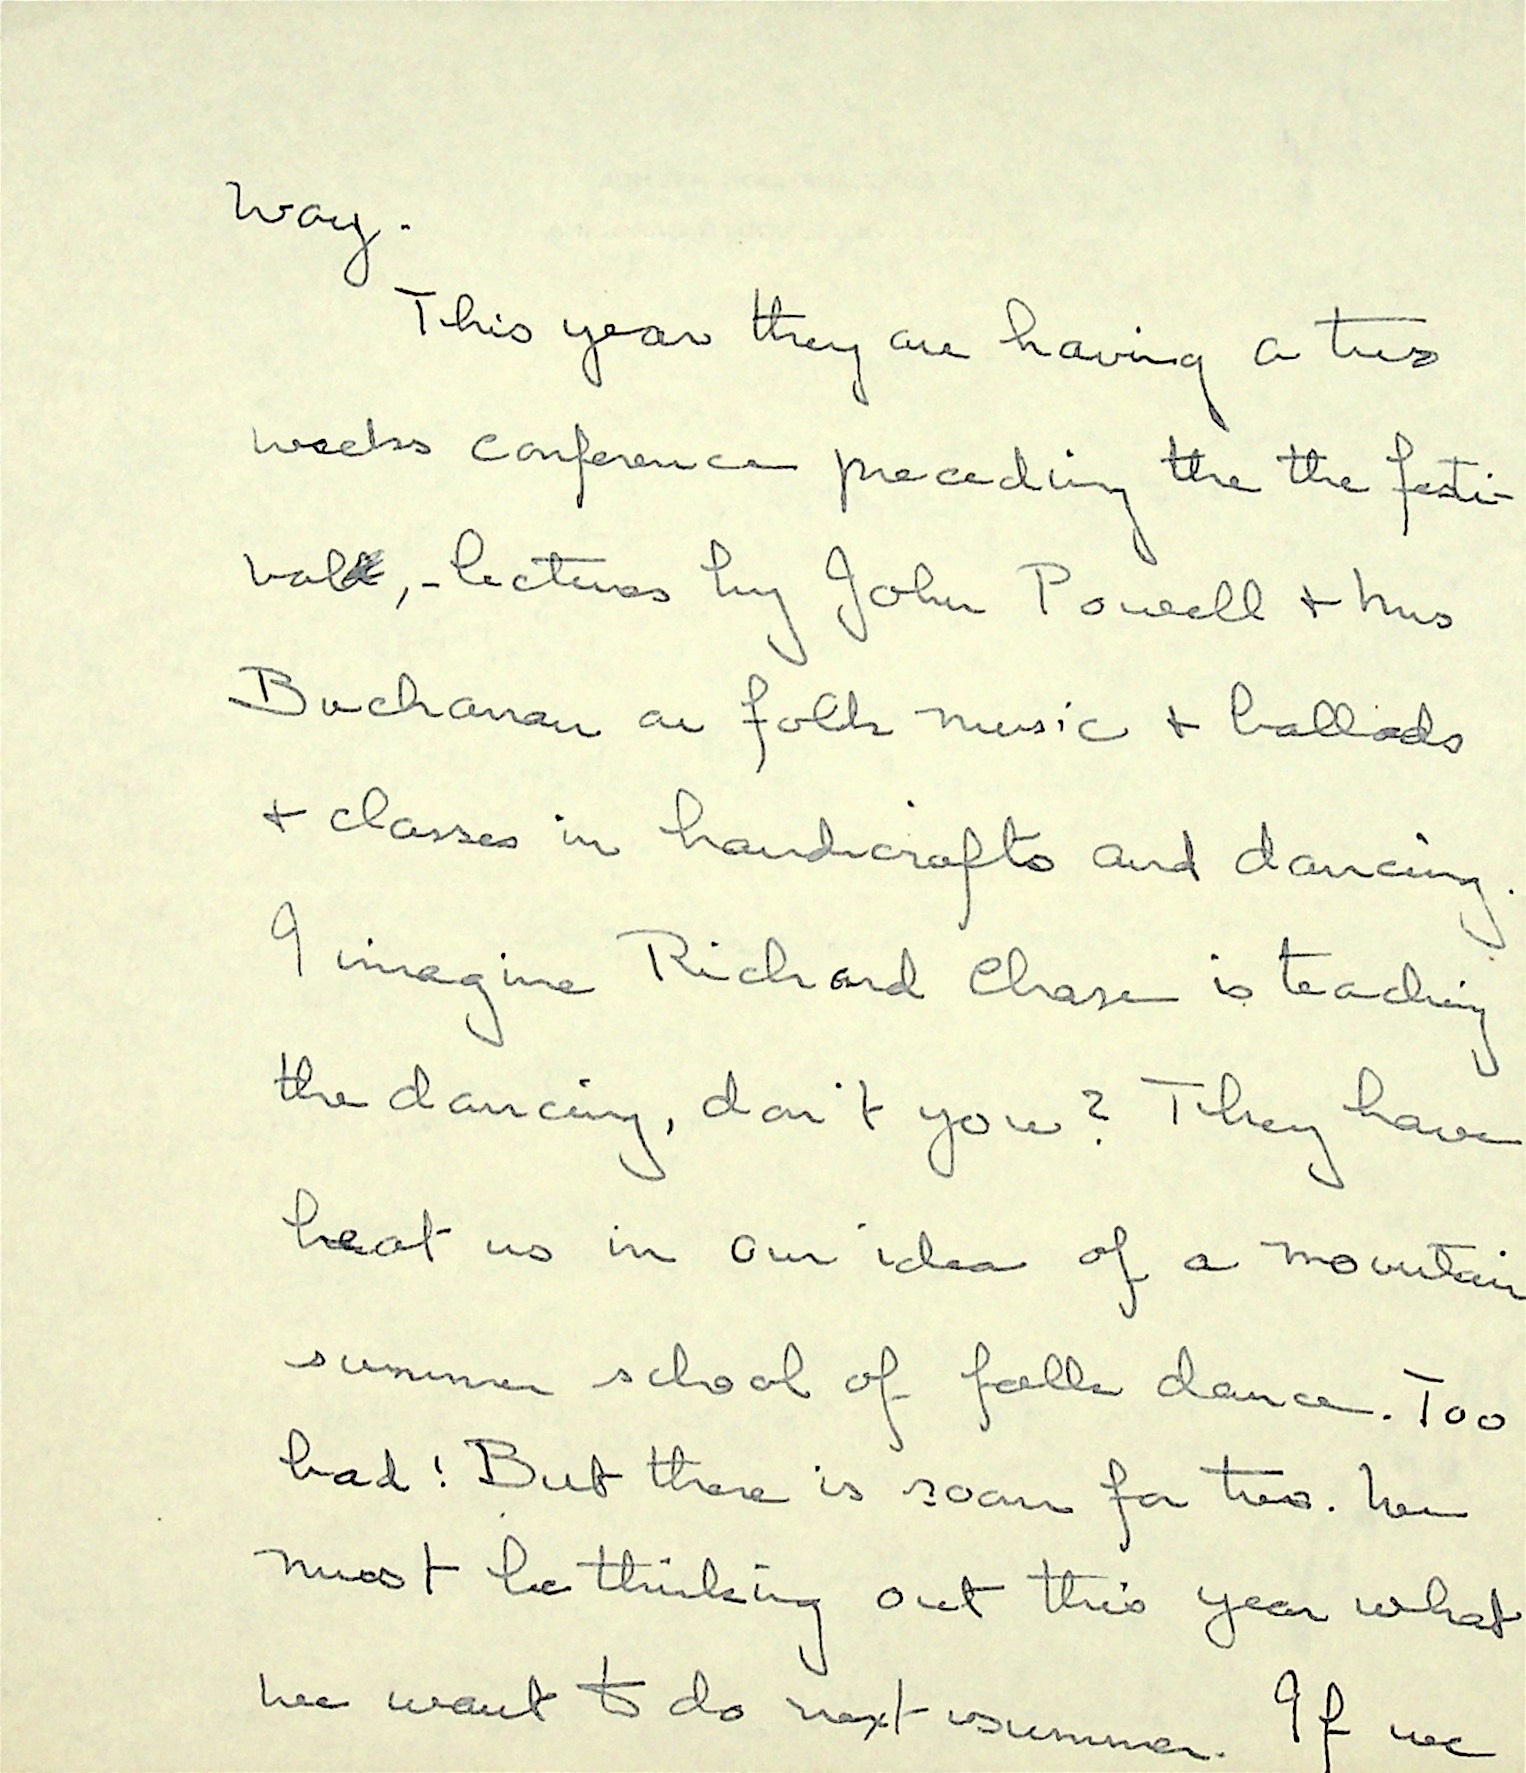 Way.
This year they are having a two
weeks conference preceding the the festi-
val, - lectures by John Powell + Mrs
Buchanan on folk music + ballads
+ classes in handicrafts and dancing.
I imagine Richard Chase is teaching
the dancing, don't you? They have
beat us in our idea of a mountain
summer school of folk dance. Too
bad! But there is room for two. We
must be thinking out this year what
we want to do next summer. If we